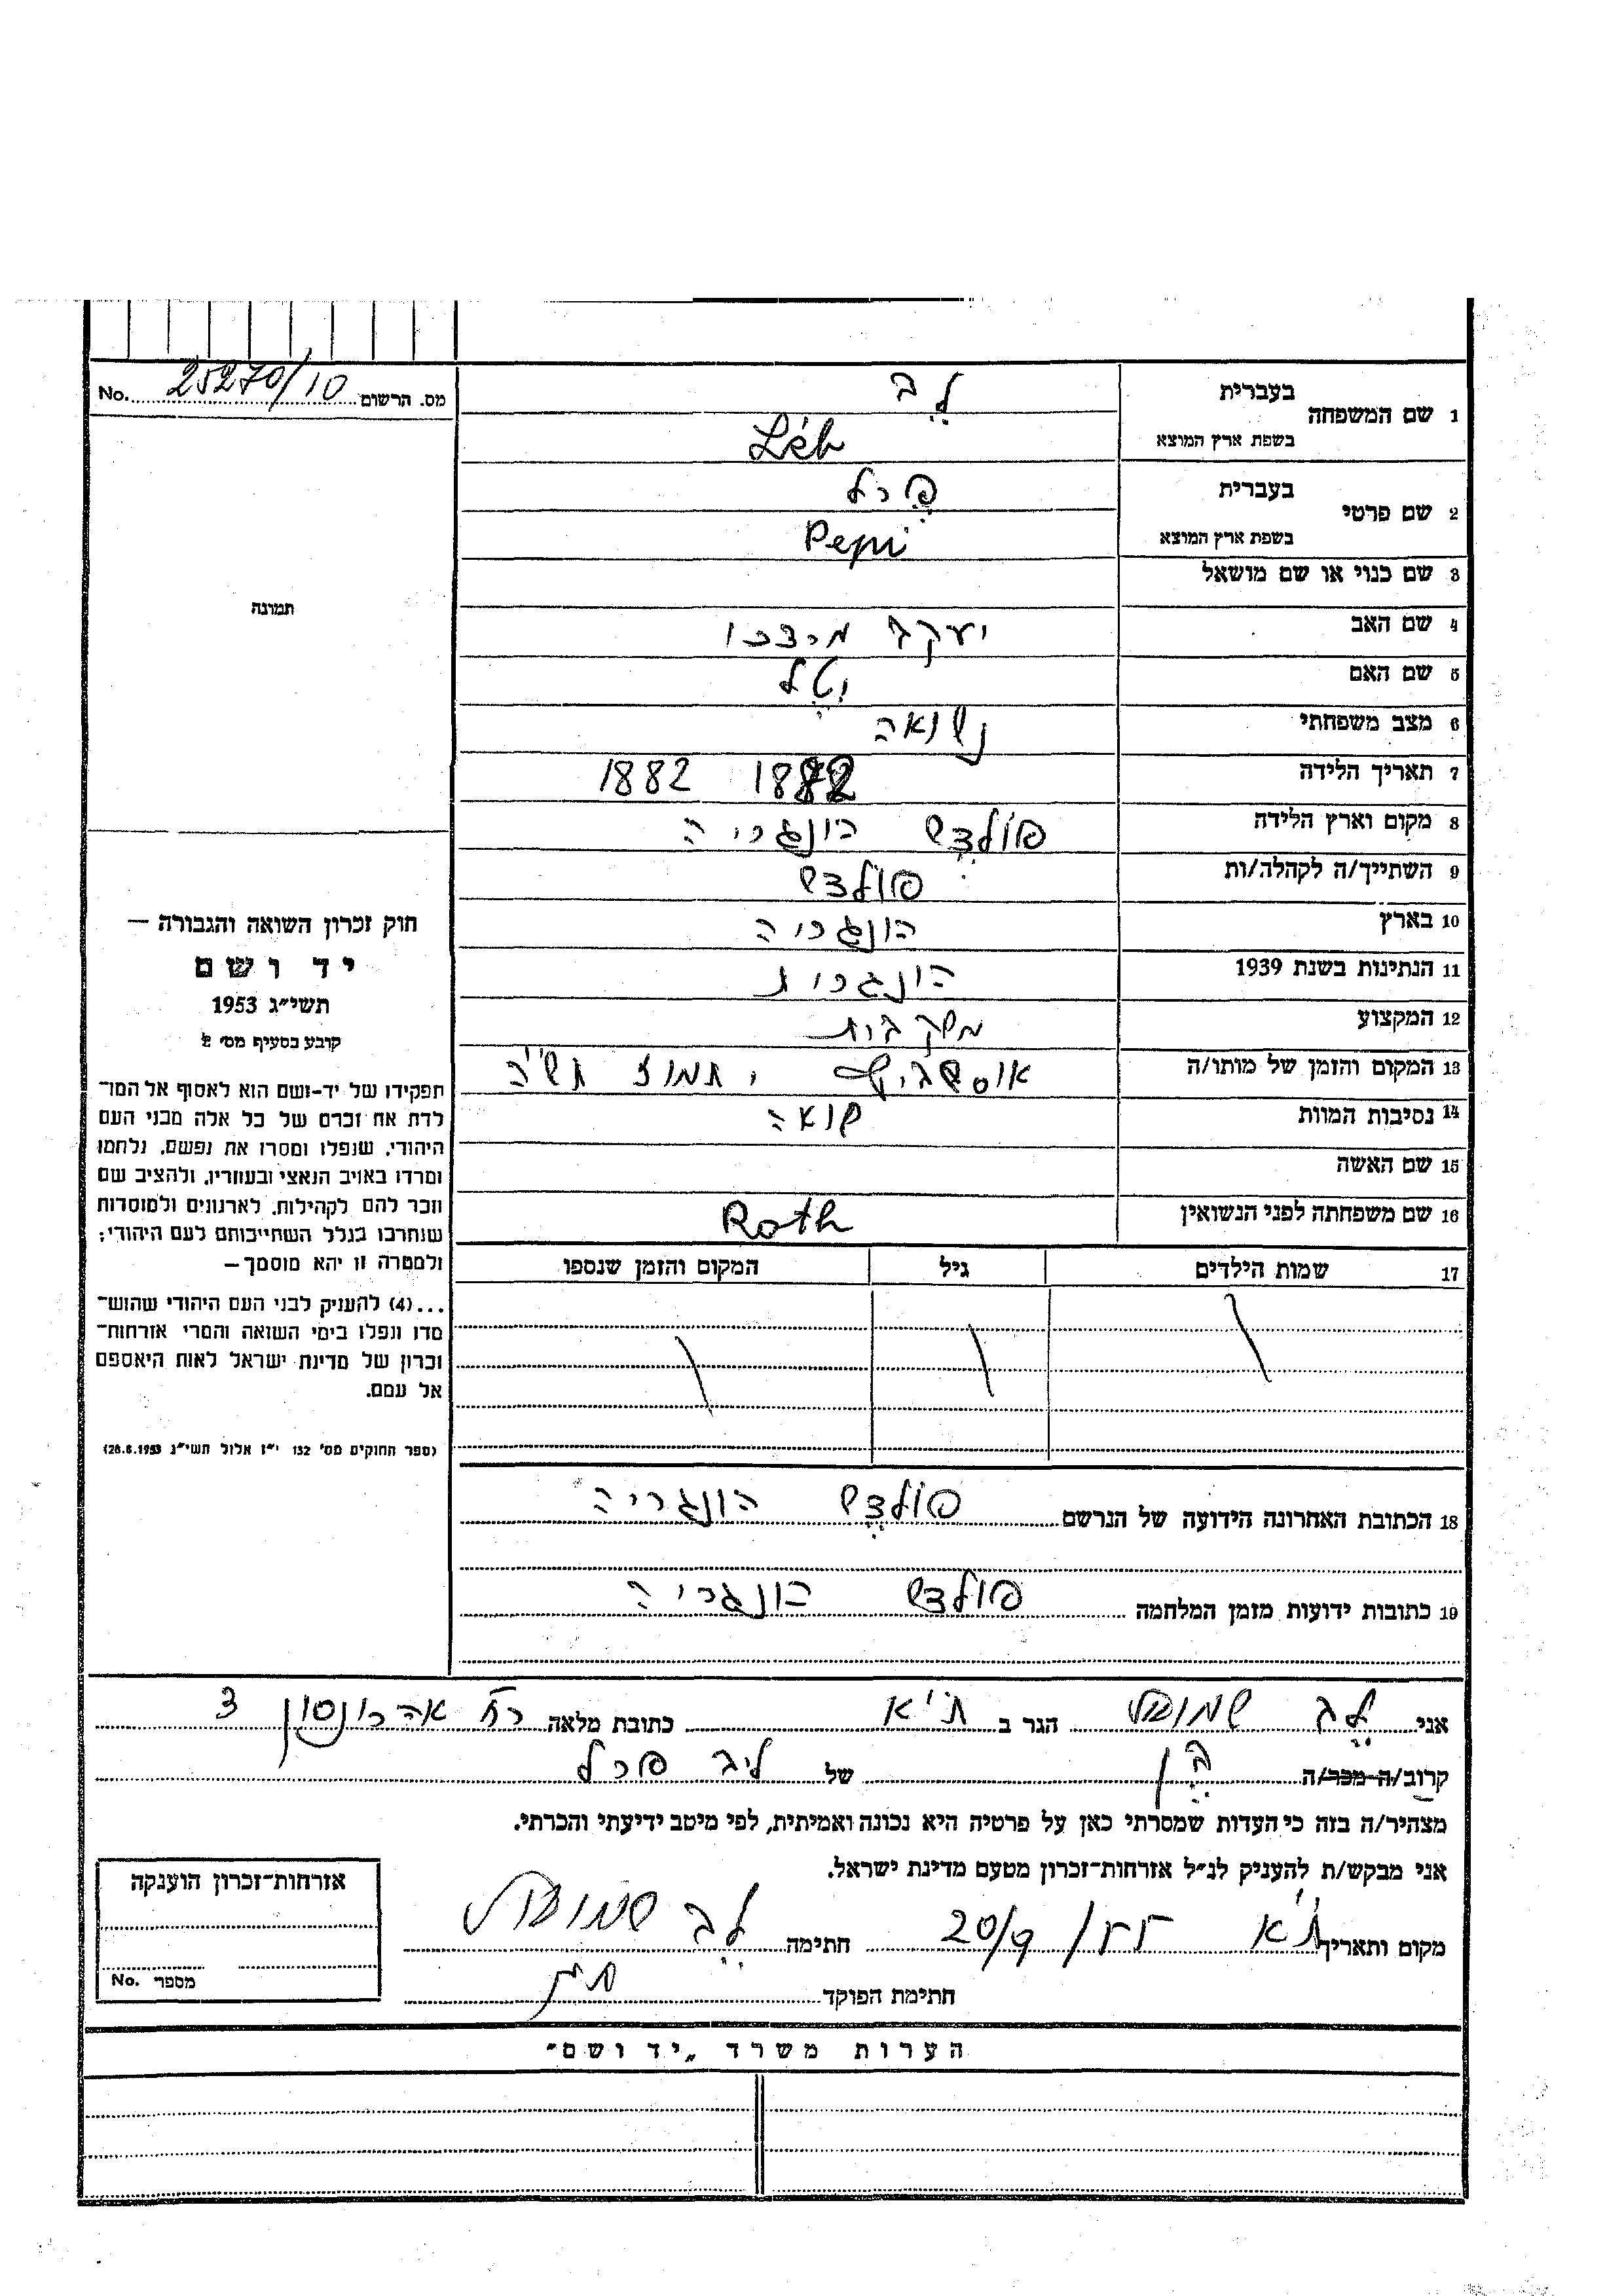 מס. הרשום 25270/10 No.
1 שם המשפחה
בעברית לב
בשפת ארץ המוצא Léb
2 שם פרטי
בעברית פרל
בשפת ארץ המוצא Pepi
3 שם כנוי או שם מושאל
4 שם האב יעקב
5 שם האם יטל
6 מצב משפחתי נשואה
7 תאריך הלידה 1882 1882
8 מקום וארץ הלידה פולדש הונגריה
9 השתייך/ה לקהלה/ות פולדש
10 בארץ הונגריה
11 הנתינות בשנת 1939 הונגרית
12 המקצוע משק בית
13 המקום והזמן של מותו/ה אושביץ י תמוז תש"ה
14 נסיבות המוות שואה
15 שם האשה
16 שם משפחתה לפני הנשואין Roth
17 שמות הילדים גיל המקום והזמן שנספו
18 הכתובת האחרונה הידועה של הנרשם פולדש הונגריה
19 כתובות ידועות מזמן המלחמה פולדש הונגריה
תמונה
חוק זכרון השואה והגבורה —
יד ושם
תשי״ג 1953
קובע בסעיף מס׳ 2
תפקידו של יד-ושם הוא לאסוף אל המו־
לדת את זכרם של כל אלה מבני העם
היהודי, שנפלו ומסרו את נפשם, נלחמו
ומרדו באויב הנאצי ובעוזריו, ולהציב שם
וזכר להם לקהילות, לארגונים ולמוסדות
שנחרבו בגלל השתייכותם לעם היהודי;
ולמטרה זו יהא מוסמך—
...(4) להעניק לבני העם היהודי שהוש־
מדו ונפלו בימי השואה והמרי אזרחות־
זכרון של מדינת ישראל לאות היאספם
אל עמם.
(ספר החוקים מס׳ 132 י״ז אלול תשי״ג 28.8.1953)
אני לב שמואל הגר ב ת"א כתובת מלאה רח אהרונסון 3
קרוב/ה מכר/ה בן של ליב פרל
מצהיר/ה בזה כי העדות שמסרתי כאן על פרטיה היא נכונה ואמיתית, לפי מיטב ידיעתי והכרתי.
אני מבקש/ת להעניק לנ״ל אזרחות־זכרון מטעם מדינת ישראל.
מקום ותאריך ת"א 20/9 חתימה לב שמואל
חתימת הפוקד
אזרחות־זכרון הוענקה
מספר No.
הערות משרד „יד ושם"